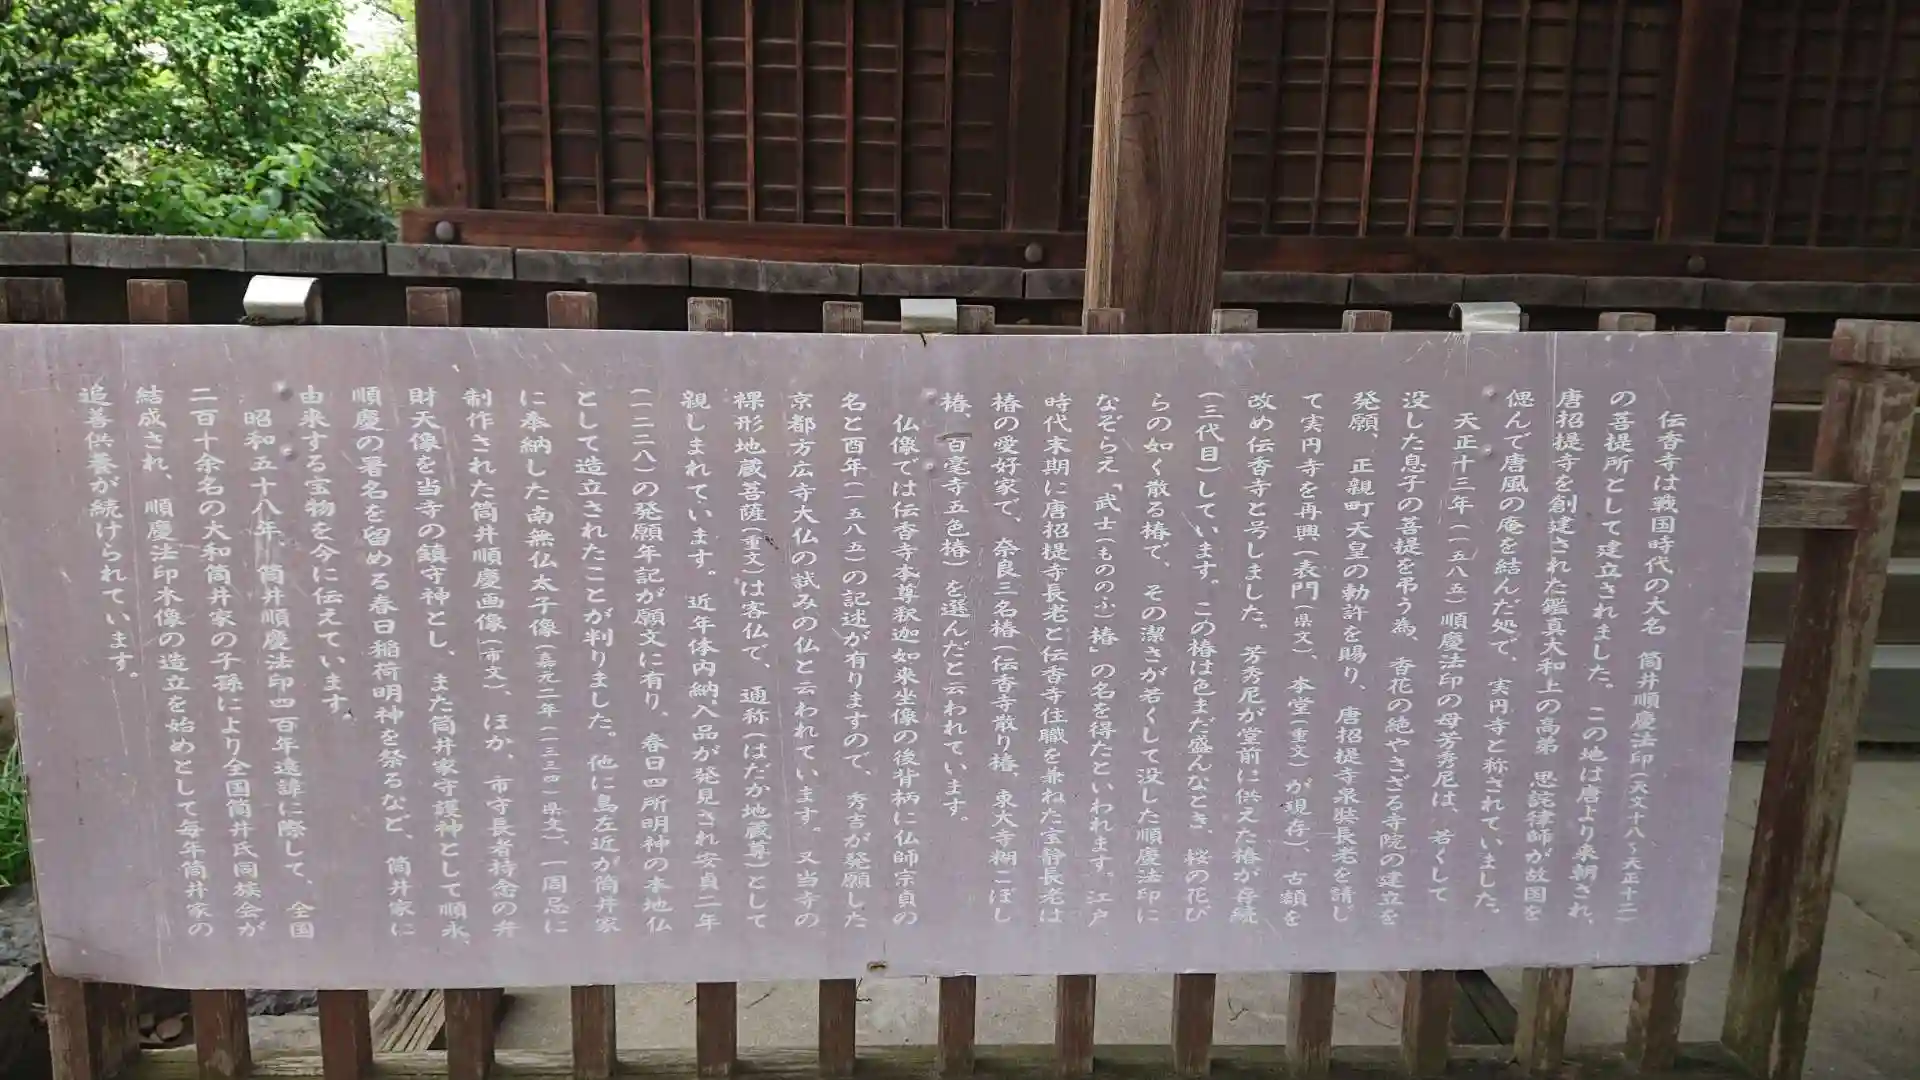 伝香寺は戦国時代の大名 筒井順慶法印(天文十八〜天正十二)
の菩提所として建立されました。この地は唐より来朝され、
唐招提寺を創建された鑑真大和上の高弟 思託律師が故国を
偲んで唐風の庵を結んだ処で、実円寺と称されていました。
天正十三年(一五八五)順慶法印の母芳秀尼は、若くして
没した息子の菩提を弔う為、香花の絶やさざる寺院の建立を
発願、正親町天皇の勅許を賜り、唐招提寺泉奘長老を請じ
て実円寺を再興(表門(県文)、本堂(重文)が現存)、古額を
改め伝香寺と号しました。芳秀尼が堂前に供えた椿が存続
(三代目)しています。この椿は色まだ盛んなとき、桜の花び
らの如く散る椿で、その潔さが若くして没した順慶法印に
なぞらえ「武士(もののふ)椿」の名を得たといわれます。江戸
時代末期に唐招提寺長老と伝香寺住職を兼ねた宝静長老は
椿の愛好家で、奈良三名椿(伝香寺散り椿、東大寺糊こぼし
椿、百毫寺五色椿)を選んだと云われています。
仏像では伝香寺本尊釈迦如来坐像の後背柄に仏師宗貞の
名と酉年(一五八五)の記述が有りますので、秀吉が発願した
京都方広寺大仏の試みの仏と云われています。又当寺の
裸形地蔵菩薩(重文)は客仏で、通称(はだか地蔵尊)として
親しまれています。近年体内納入品が発見され安貞二年
(一二二八)の発願年記が願文に有り、春日四所明神の本地仏
として造立されたことが判りました。他に島左近が筒井家
に奉納した南無仏太子像(嘉元二年(一三〇四)県文)、一周忌に
制作された筒井順慶画像(市文)、ほか、市守長者持念の弁
財天像を当寺の鎮守神とし、また筒井家守護神として順永、
順慶の署名を留める春日稲荷明神を祭るなど、筒井家に
由来する宝物を今に伝えています。
昭和五十八年、筒井順慶法印四百年遠諱に際して、全国
二百十余名の大和筒井家の子孫により全国筒井氏同族会が
結成され、順慶法印木像の造立を始めとして毎年筒井家の
追善供養が続けられています。